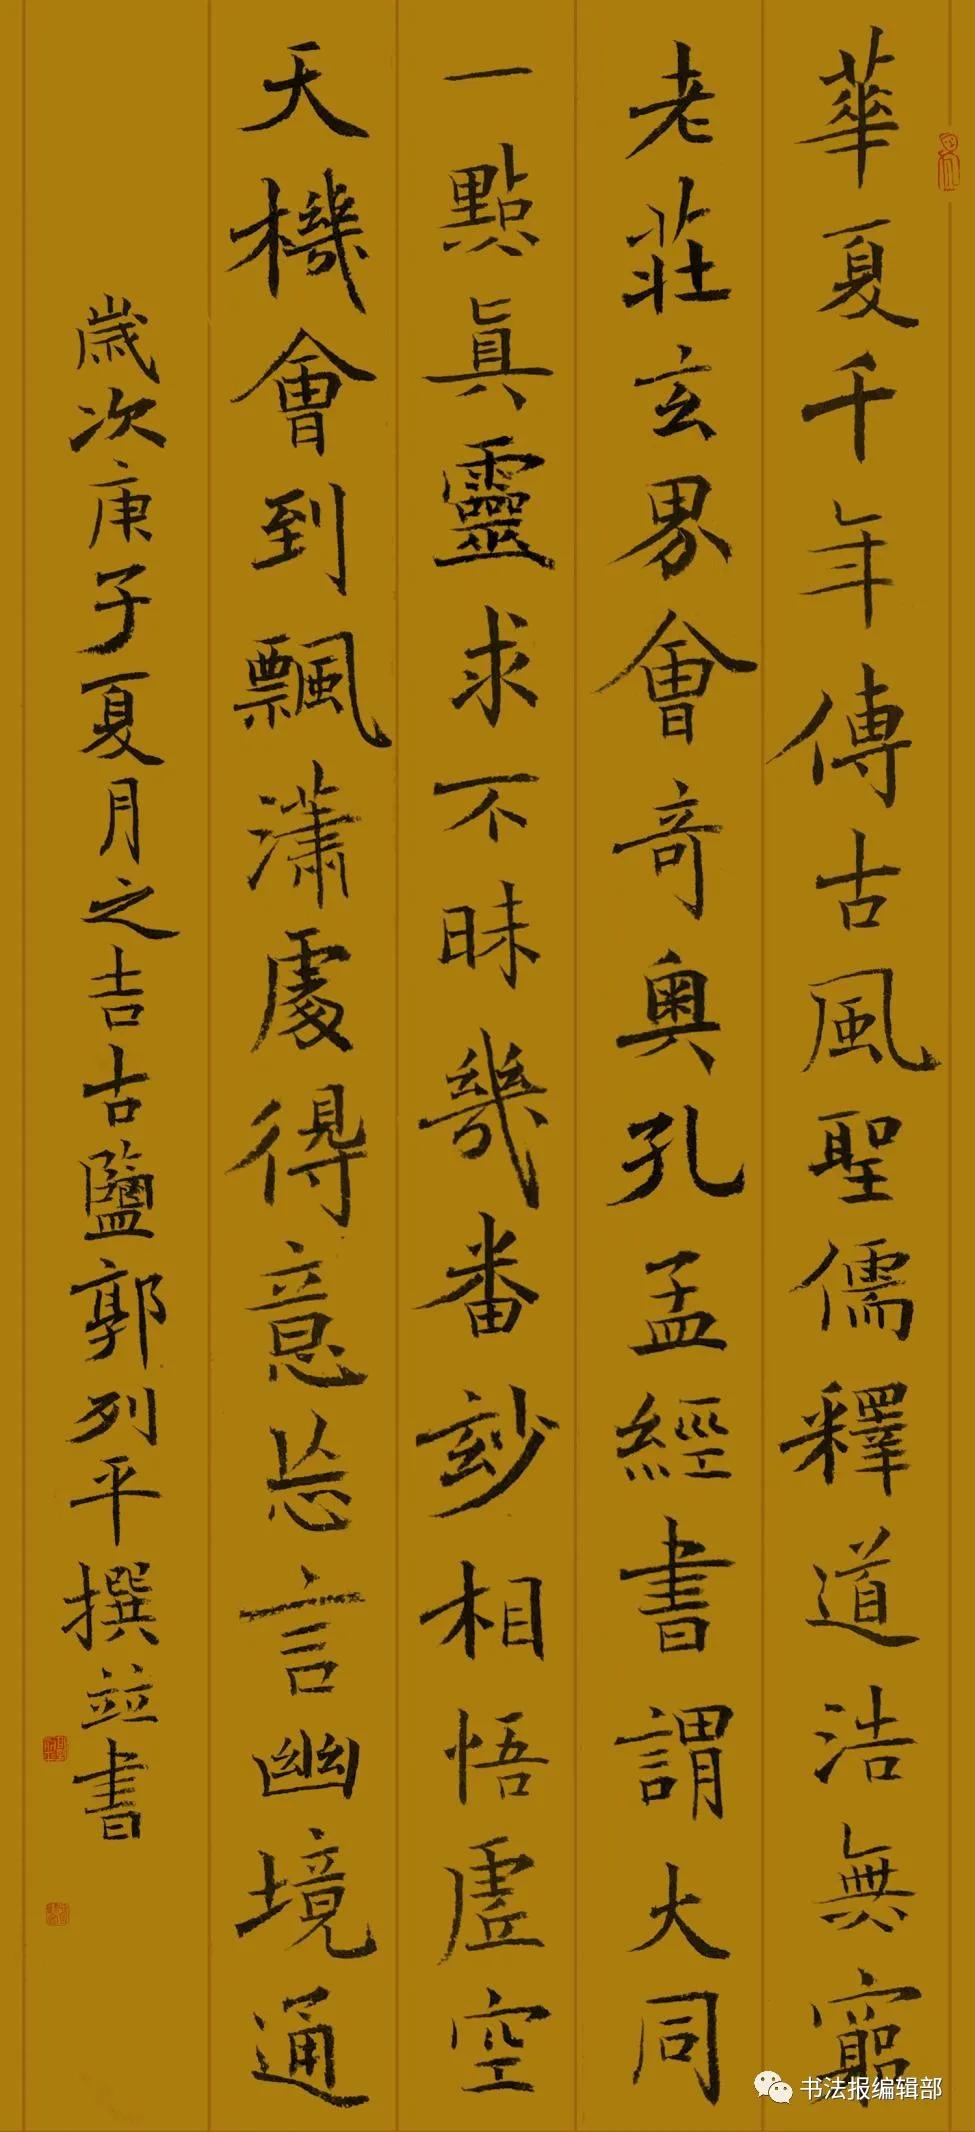 華夏千年傳古風聖儒釋道浩無窮
老莊玄界會奇奧孔孟經書謂大同
一點真靈求不昧幾番玅相悟虛空
天機會到飄瀟處得意忘言幽境通
歲次庚子夏月之吉古鹽郭列平撰並書
书法报编辑部